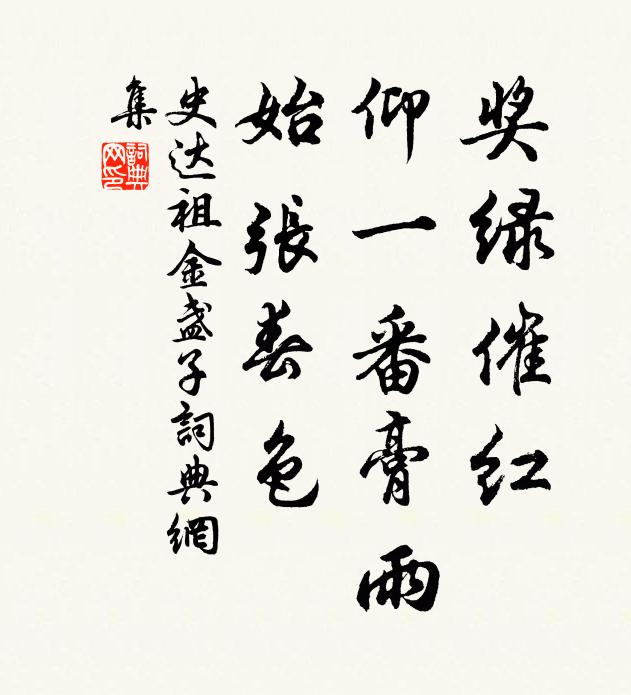 奖绿催红
仰一番膏雨
始張春色
史达祖金盏子詞典網
集
詞典
网印